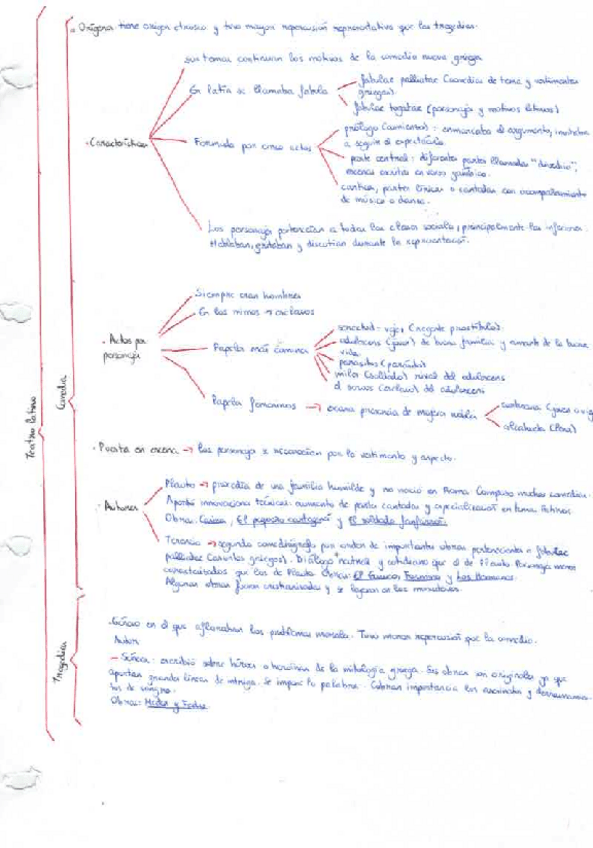 Orígenes tiene origen etrusco y tuvo mayor repercusión representativa que las tragedias.
sus temas continuan los motivos de la comedia nueva griega
En latín se llamaba fabula
fabulae palliatae (comedias de tema y vestimentas
griegas)
fabulae togatae (personajes y motivos latinos)
Características
Formada por cinco actos
prólogo (cimientos): enmarcaba el argumento, invitaba
a seguir el espectáculo.
parte central: diferentes partes llamadas "diverbia",
escenas escritas en verso yámbico.
cantica, partes líricas o cantadas con acompañamiento
de música o danza.
Los personajes pertenecían a todas las clases sociales, principalmente las inferiores.
Hablaban, gritaban y discutian durante la representación.
Siempre eran hombres
En los mimos → esclavos
Actos por
personajes
Papeles más comunes
senectud: viejo (regente prostíbulos)
adulescens (joven) de buena familia y amante de la buena
vida
parasitos (parásito)
miles (soldado) rival del adulescens
el servus (esclavo) del adulescens
Papeles femeninos → escasa presencia de mujeres nobles
cortesana (joven o
alcahueta (lena)
Comedia
Teatro latino
Puesta en escena → los personajes se reconocían por la vestimenta y aspecto.
Autores
Plauto → procedía de una familia humilde y no nació en Roma. Compuso muchas comedias.
Aportó innovaciones técnicas: aumento de partes cantadas y especialización en temas
Obras: Casina, El pequeño cartaginés y El soldado fanfarrón
Terencio → segundo comediógrafo por orden de importancia obras pertenecientes a fabulae
palliatae (asuntos griegos). Diálogo + natural y cotidiano que el de Plauto Personajes menos
caricaturizados que los de Plauto Obras: El Eunuco Formión y Los Hermanos.
Algunas obras fueron cristianizadas y se leyeron en los monasterios.
Tragedia
Género en el que afloraban los problemas morales. Tuvo menos repercusión que la comedia.
Autor
- Séneca: escribió sobre héroes o heroínas de la mitología griega. Sus obras son originales ya que
aportan grandes líneas de intriga. Se impone la palabra. Cobran importancia los asesinatos y
de sangre.
Obras: Medea y Fedra